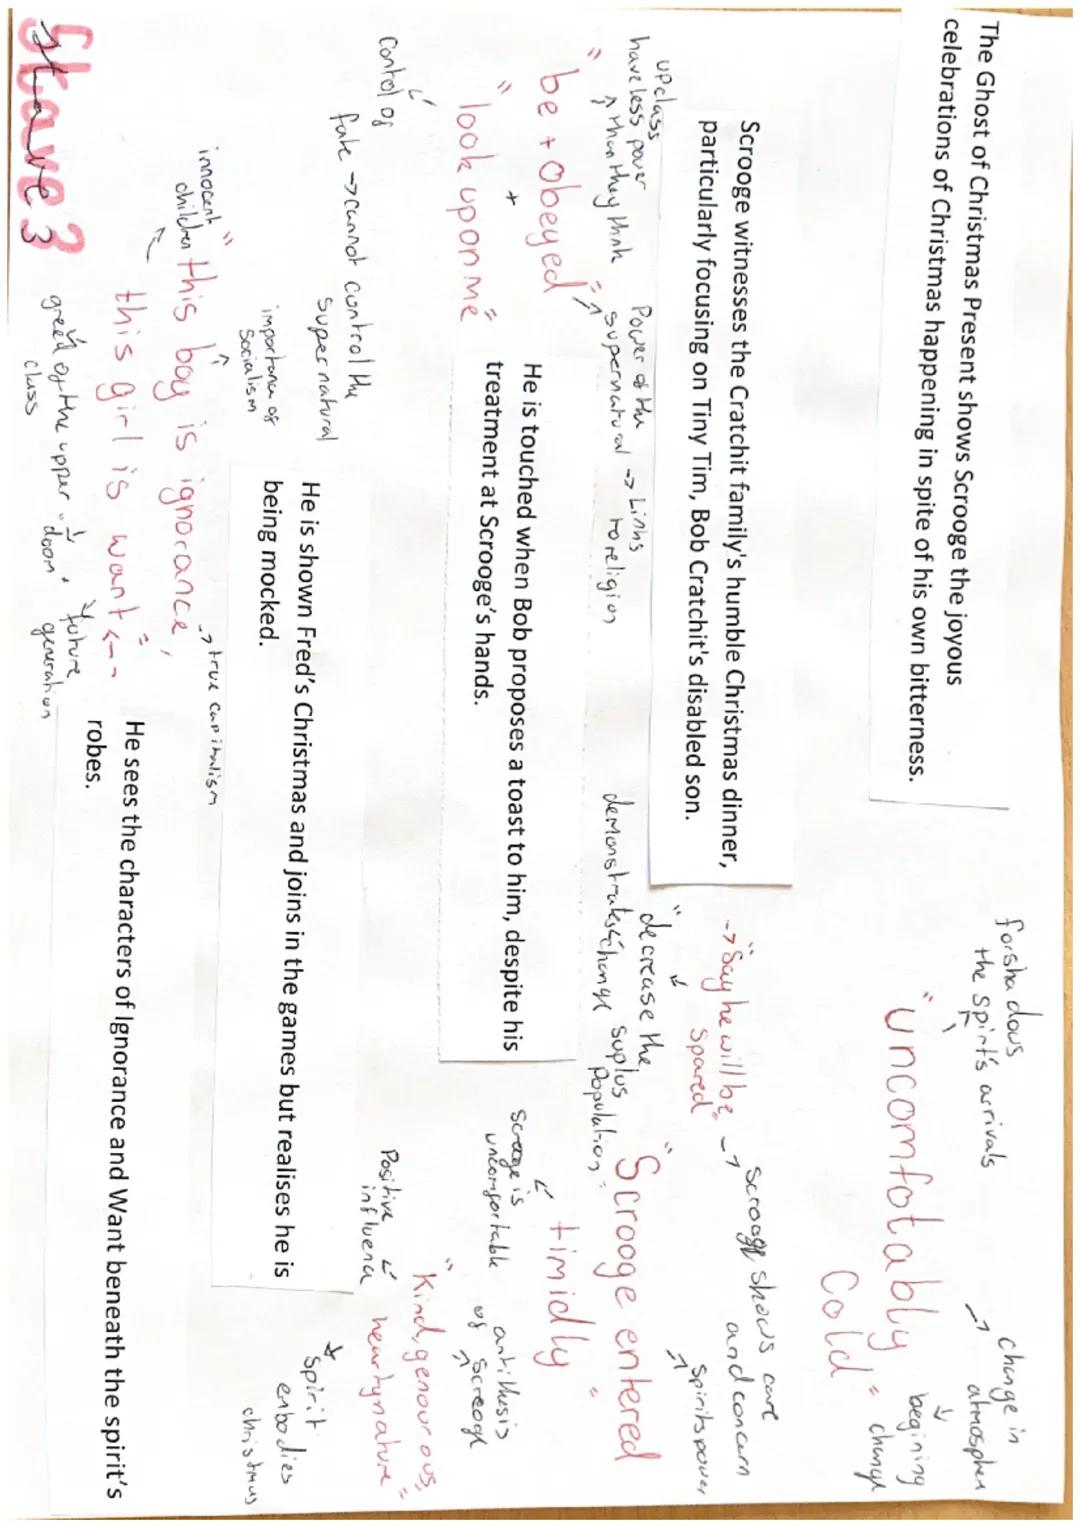 Stave 3
The Ghost of Christmas Present shows Scrooge the joyous
celebrations of Christmas happening in spite of his own bitterness.
forshadows
the spirit's arrivals
"uncomfotably
Cold"
change in
atmospher
begining
change
Scrooge witnesses the Cratchit family's humble Christmas dinner,
particularly focusing on Tiny Tim, Bob Cratchit's disabled son.
-> "Say he will be
spared"
-> Scrooge shows care
and concern
"decrease the
suplus
population"
demonstrates change
upclass
have less power
than they think
"be + obeyed"
+
"look upon me"
Power of the
supernatural -> Links
to religion
Control of
fate -> cannot control the
supernatural
He is touched when Bob proposes a toast to him, despite his
treatment at Scrooge's hands.
"Scrooge entered
timidly"
spirits power
Scrooge is
uncomfortable
antithisis
of Scrooge
"Kind, genourous,
heartynature"
Positive
influence
spirit
embodies
christmas
He is shown Fred's Christmas and joins in the games but realises he is
being mocked.
innocent
children
importance of
socialism
"this boy is ignorance,
this girl is want"
-> true capitalism
greed of the upper
class
"doom"
future
generation
He sees the characters of Ignorance and Want beneath the spirit's
robes.